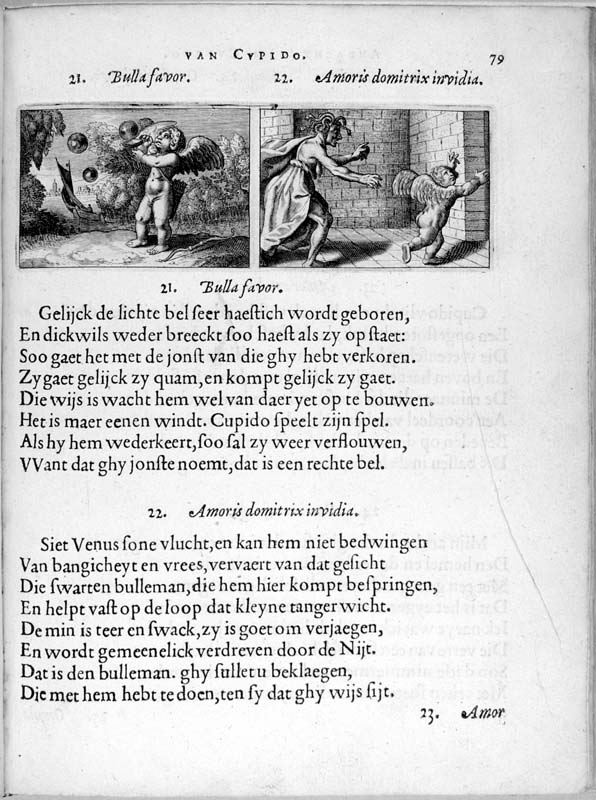 VAN CVPIDO. 79
21. Bulla favor. 22. Amoris domitrix invidia.
21. Bulla favor.
Gelijck de lichte bel seer haestich wordt geboren,
En dickwils weder breeckt soo haest als zy op staet:
Soo gaet het met de jonst van die ghy hebt verkoren.
Zy gaet gelijck zy quam, en kompt gelijck zy gaet.
Die wijs is wacht hem wel van daer yet op te bouwen.
Het is maer eenen windt. Cupido speelt zijn spel.
Als hy hem wederkeert, soo sal zy weer verflouwen,
VVant dat ghy jonste noemt, dat is een rechte bel.
22. Amoris domitrix invidia.
Siet Venus sone vlucht, en kan hem niet bedwingen
Van bangicheyt en vrees, vervaert van dat gesicht
Die swarten bulleman, die hem hier kompt bespringen,
En helpt vast op de loop dat kleyne tanger wicht.
De min is teer en swack, zy is goet om verjaegen,
En wordt gemeenelick verdreven door de Nijt.
Dat is den bulleman. ghy sullet u beklaegen,
Die met hem hebt te doen, ten sy dat ghy wijs sijt.
23. Amor